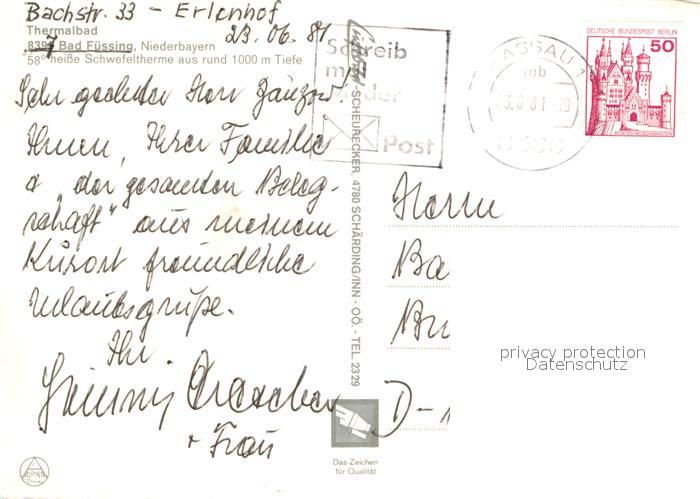 Bachstr. 33 - Erlenhof
Thermalbad
23.06.81
8397 Bad Füssing, Niederbayern
58° heiße Schwefeltherme aus rund 1000 m Tiefe
Sehr geehrter Herr
Ihnen, Ihrer Familie
& der gesamten Beleg-
schaft" aus meinem
Kurort freundliche
Urlaubsgrüße.
Ihr
+ Frau
SCHEURECKER, 4780 SCHÄRDING/INN - OÖ. - TEL. 2329
Schreib
mal
wieder
Post
PASSAU 1
mb
23.6.81-19
8390
DEUTSCHE BUNDESPOST BERLIN
50
SCHLOSS NEUSCHWANSTEIN
Herrn
Ba
Br
D-1
privacy protection
Datenschutz
Das Zeichen
für Qualität
ALPINA
Druck